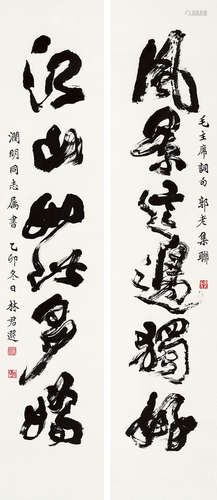 风景这边独好
毛主席詞句 郭老集聯
江山如此多嬌
潤明同志属書
乙卯冬日 林君選